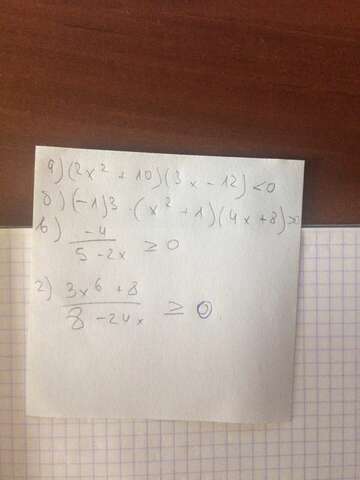 а) (2x² + 10)(3x - 12) < 0
б) (-1)3 · (x² + 1)(4x + 8) >
в) -4 / 5 - 2x ≥ 0
г) 3x⁶ + 8 / 8 - 24x ≥ 0